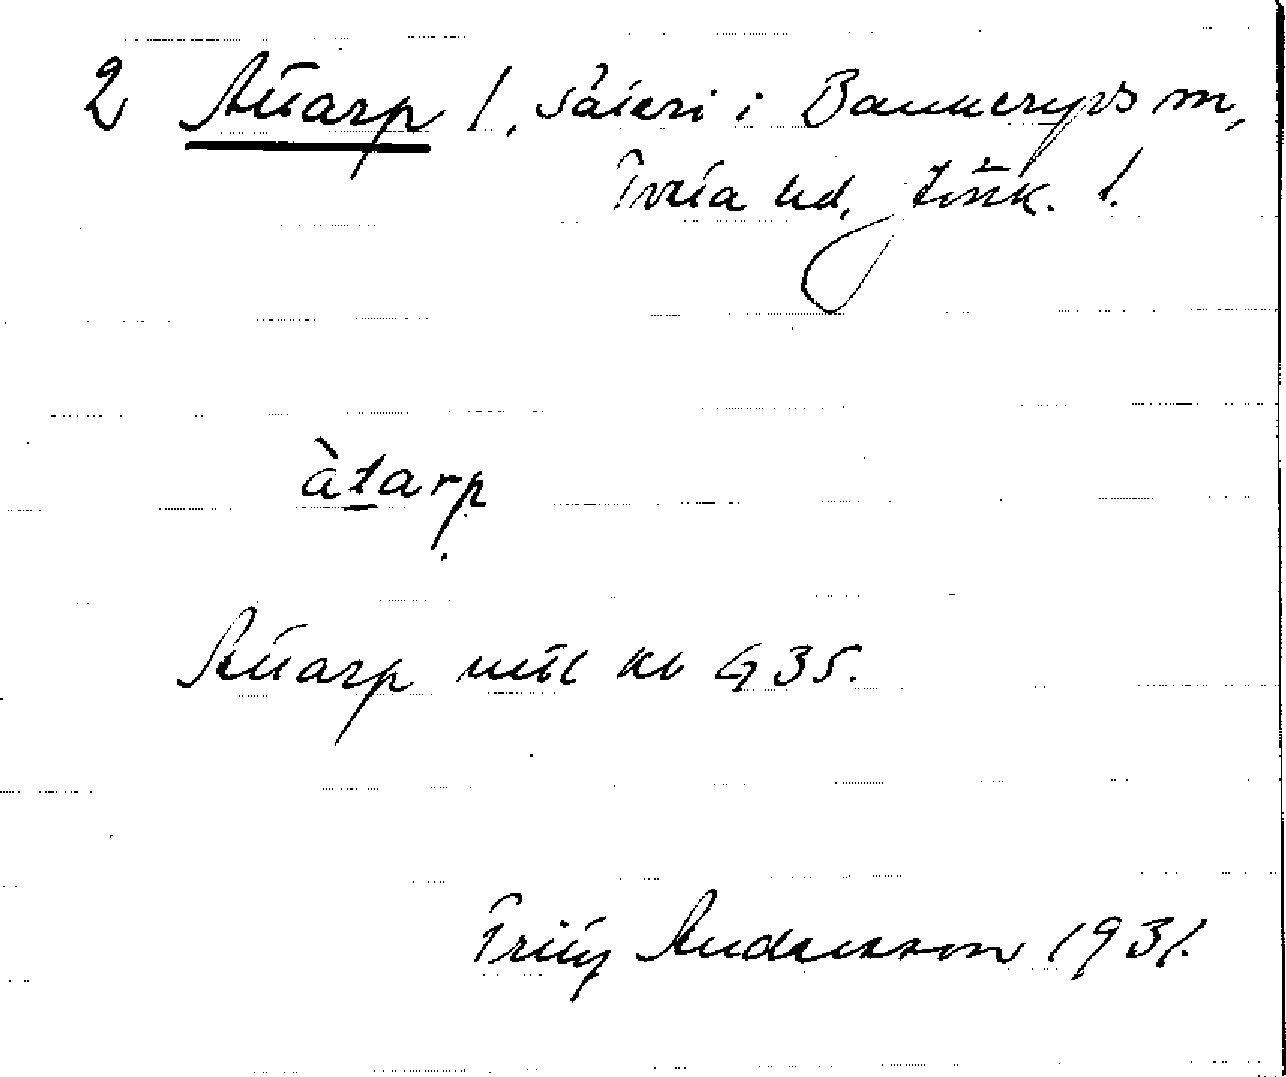 2 Attarp 1, säteri i Bankeryds sn,
Tveta hd, Jönk. l.
àtarp
Attarp utöl kb G 35.
Fritz Andersson 1931.